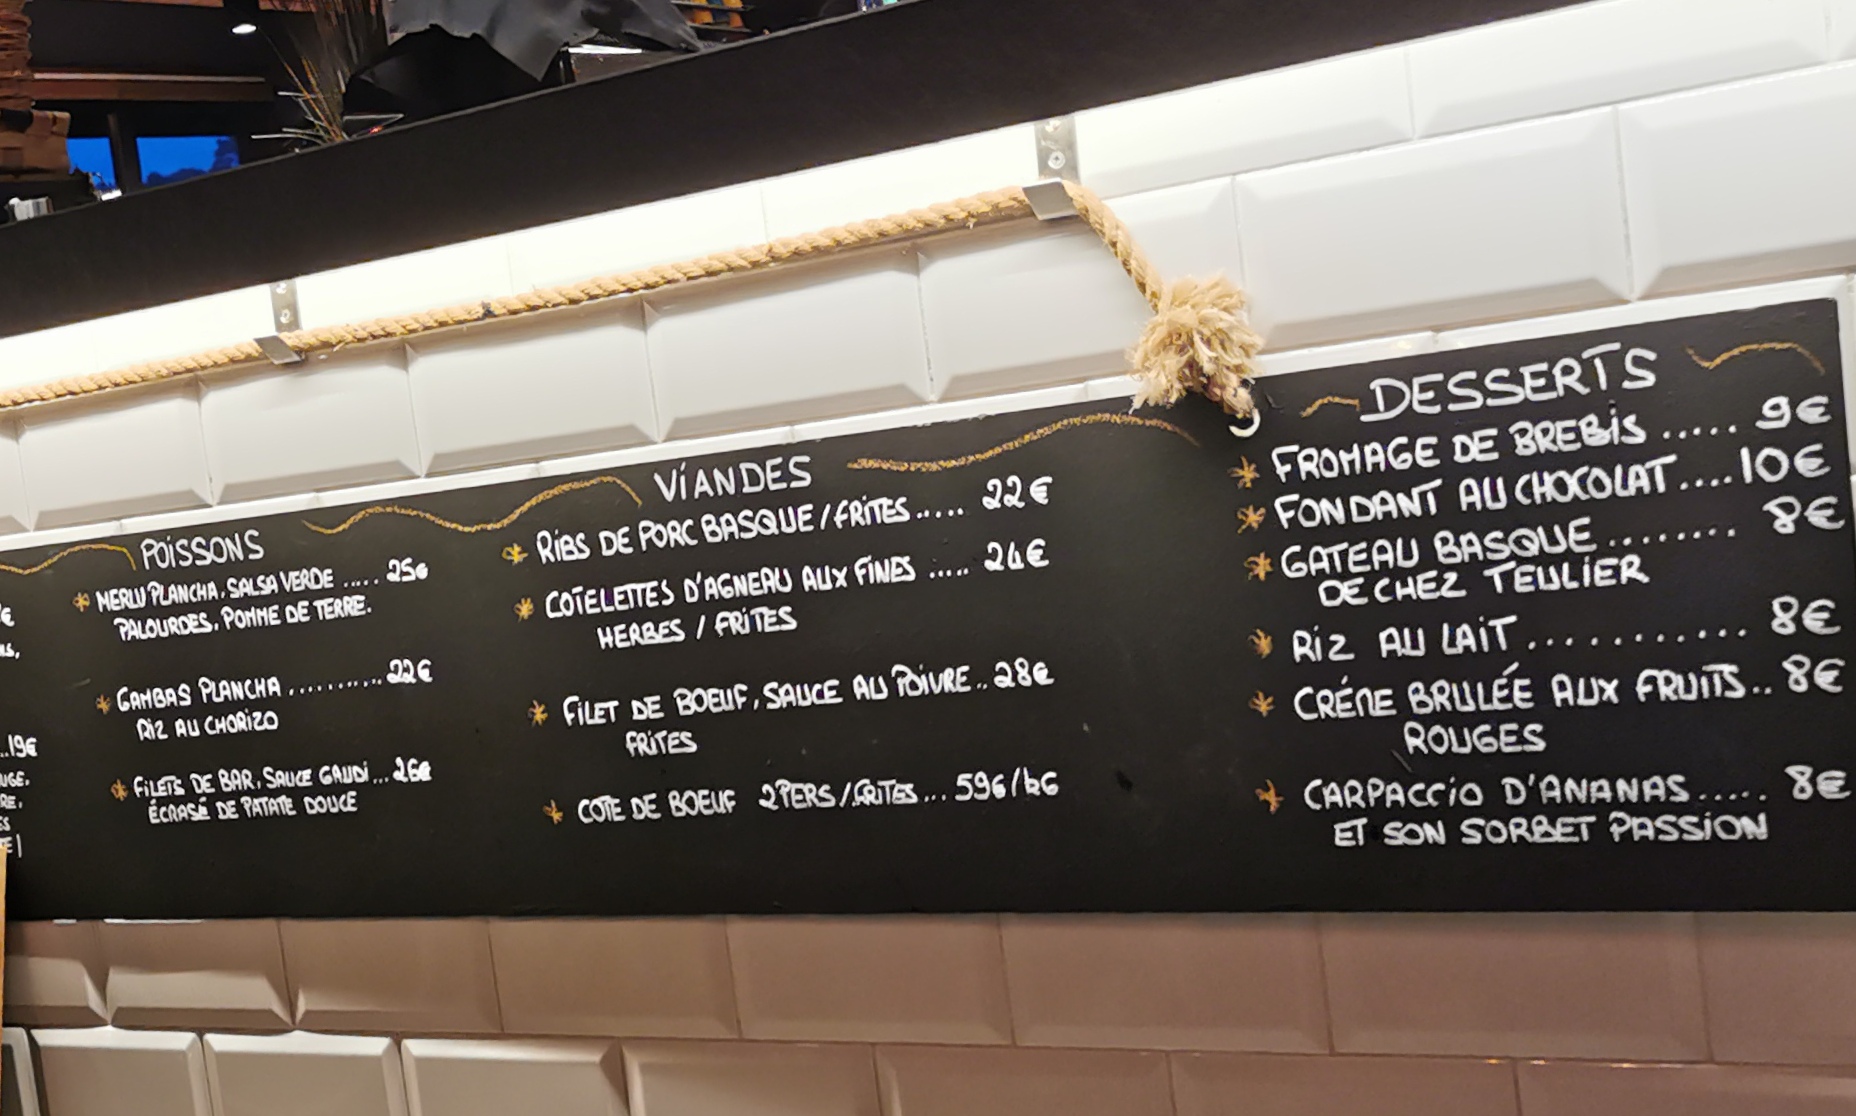 €
..19€
POISSONS
MERLU PLANCHA, SALSA VERDE ..... 25€
PALOURDES, POMME DE TERRE.
GAMBAS PLANCHA .......... 22€
RIZ AU CHORIZO
FILETS DE BAR, SAUCE GAUDI ... 26€
ÉCRASÉ DE PATATE DOUCE
VIANDES
RIBS DE PORC BASQUE / FRITES ..... 22€
COTELETTES D'AGNEAU AUX FINES ..... 24€
HERBES / FRITES
FILET DE BOEUF, SAUCE AU POIVRE .. 28€
FRITES
COTE DE BOEUF 2 PERS / FRITES ... 59€/kG
DESSERTS
FROMAGE DE BREBIS ..... 9€
FONDANT AU CHOCOLAT .... 10€
GATEAU BASQUE ........ 8€
DE CHEZ TEULIER
RIZ AU LAIT ........... 8€
CRÉME BRULÉE AUX FRUITS .. 8€
ROUGES
CARPACCIO D'ANANAS ..... 8€
ET SON SORBET PASSION